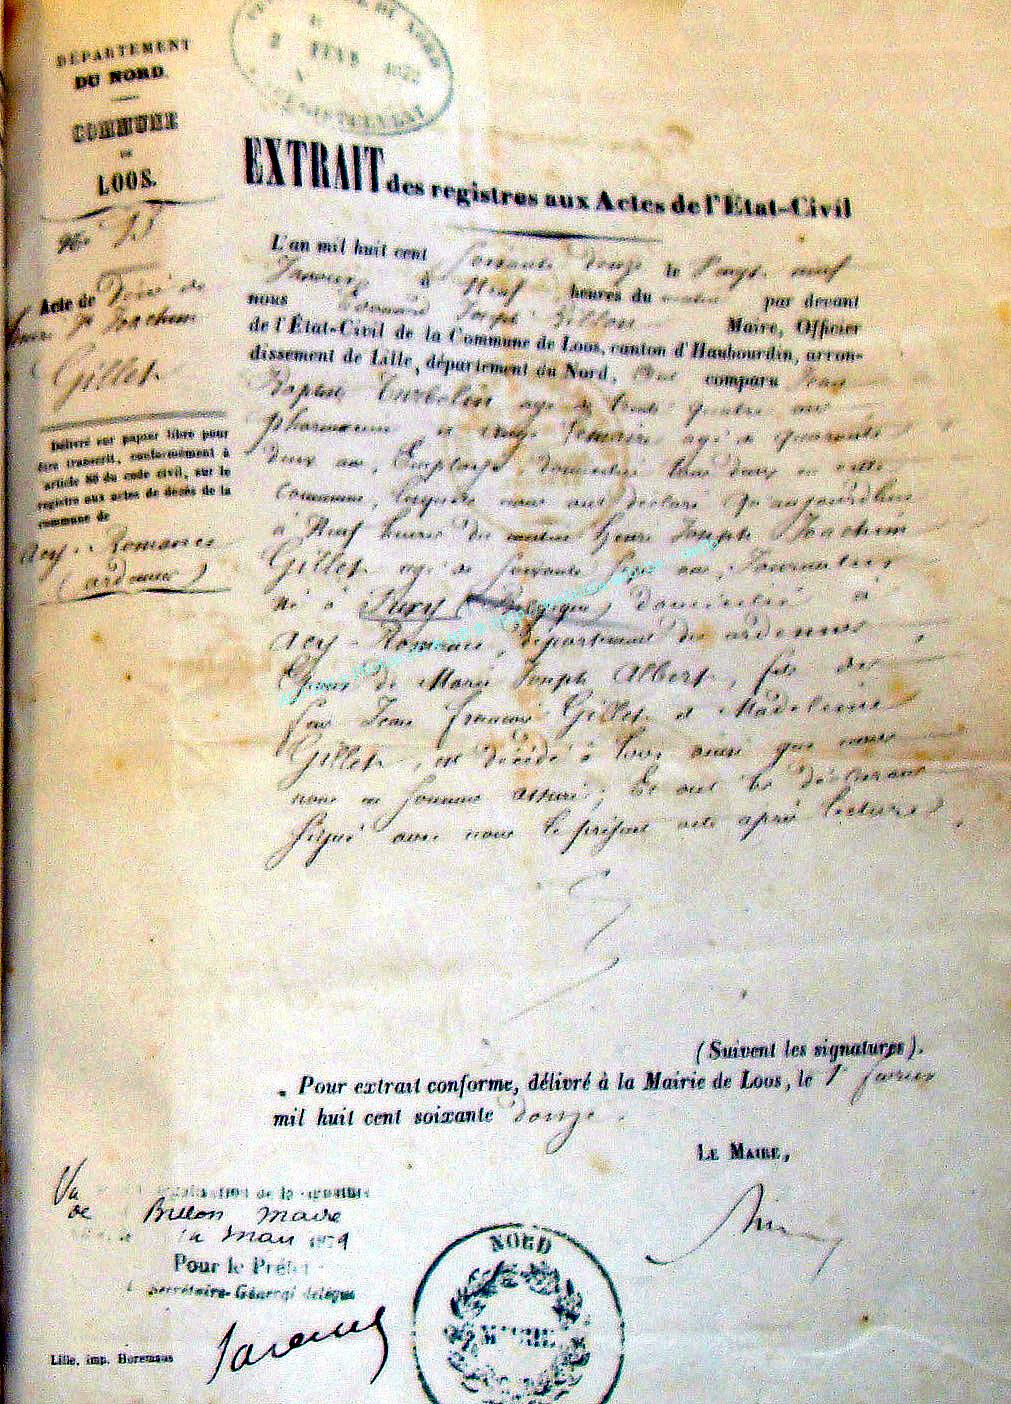 DÉPARTEMENT
DU NORD.
COMMUNE
DE
LOOS.
Acte de Décés de
Joachim
Gillet
Délivré sur papier libre pour
être transcrit, conformément à
article 80 du code civil, sur le
registre aux actes de décès de la
commune de
Acy-Romance
(ardennes)
FEVR
EXTRAIT des registres aux Actes de l'Etat-Civil
L'an mil huit cent soixante douze le vingt neuf
Janvier à Neuf heures du matin par devant
nous Edouard Joseph Billon Maire, Officier
de l'État-Civil de la Commune de Loos, canton d'Haubourdin, arron-
dissement de Lille, département du Nord, comparu Jean
Baptiste agé de trente quatre ans
agé de quarante
deux ans, Employé, domiciliés tous deux en cette
commune, lesquels nous ont déclaré qu'aujourdhui
à Neuf heures du matin Henri Joseph Joachim
Gillet agé de soixante sept ans, Journalier
né à Suxy (Belgique) domicilié à
Acy-Romance, département des ardennes
Epoux de Marie Joseph Albert, fils de
feu Jean francois Gillet et Madeleine
Gillet, est décédé à Loos ainsi que nous
nous en sommes assuré; Et ont les déclarans
signé avec nous le présent acte après lecture
(Suivent les signatures).
Pour extrait conforme, délivré à la Mairie de Loos, le 1er fevrier
mil huit cent soixante douze.
LE MAIRE,
Vu légalisation de la signature
de Billon Maire
Pour le Préfet
Secrétaire-Général délégué
NORD
Lille, imp. Horemans